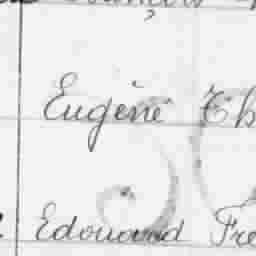 Eugène Th
Edouard Fre